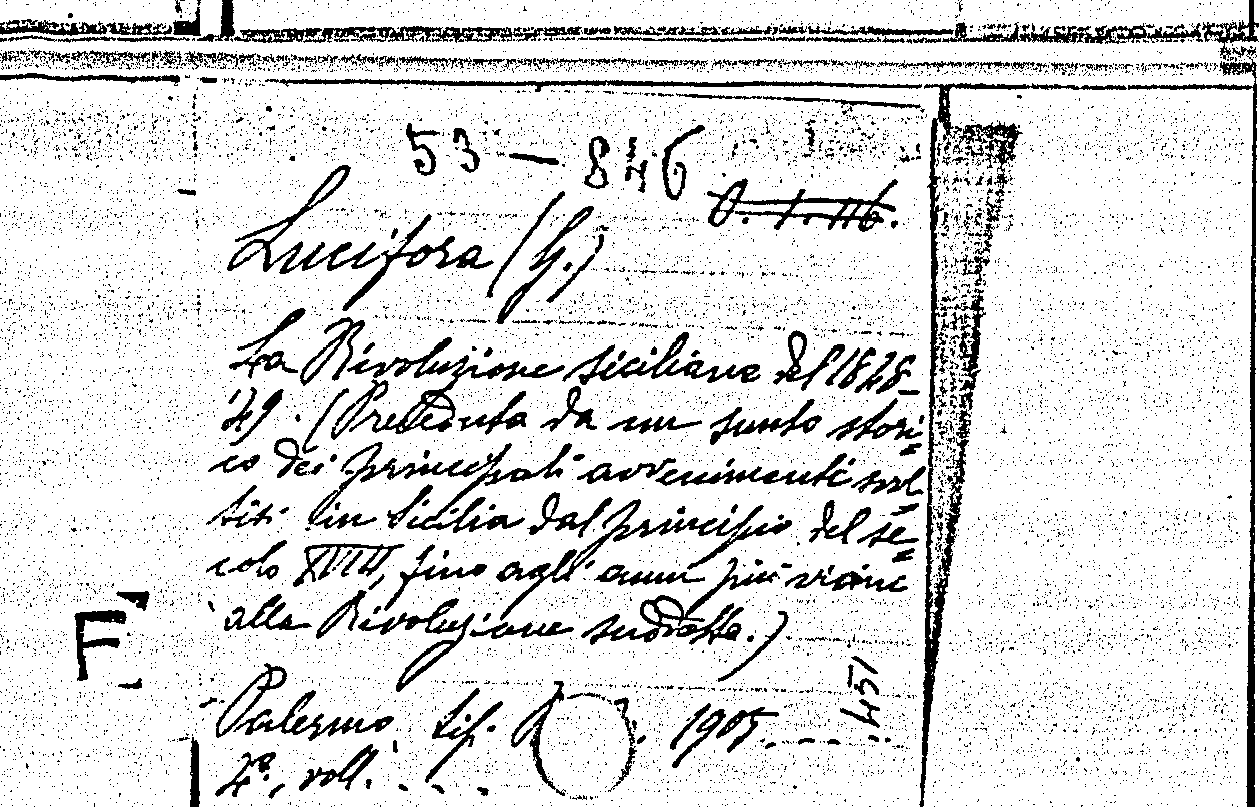 53 — 846
O. 1. 116.
Lucifora (G.)
La Rivoluzione siciliana del 1848-
'49. (Preceduta da un sunto stori=
co dei principali avvenimenti svol=
tisi in Sicilia dal principio del se=
colo XVIII, fino agli anni più vicini
alla Rivoluzione suddetta.)
Palermo, tip. 1905.
4°, voll.
451
F